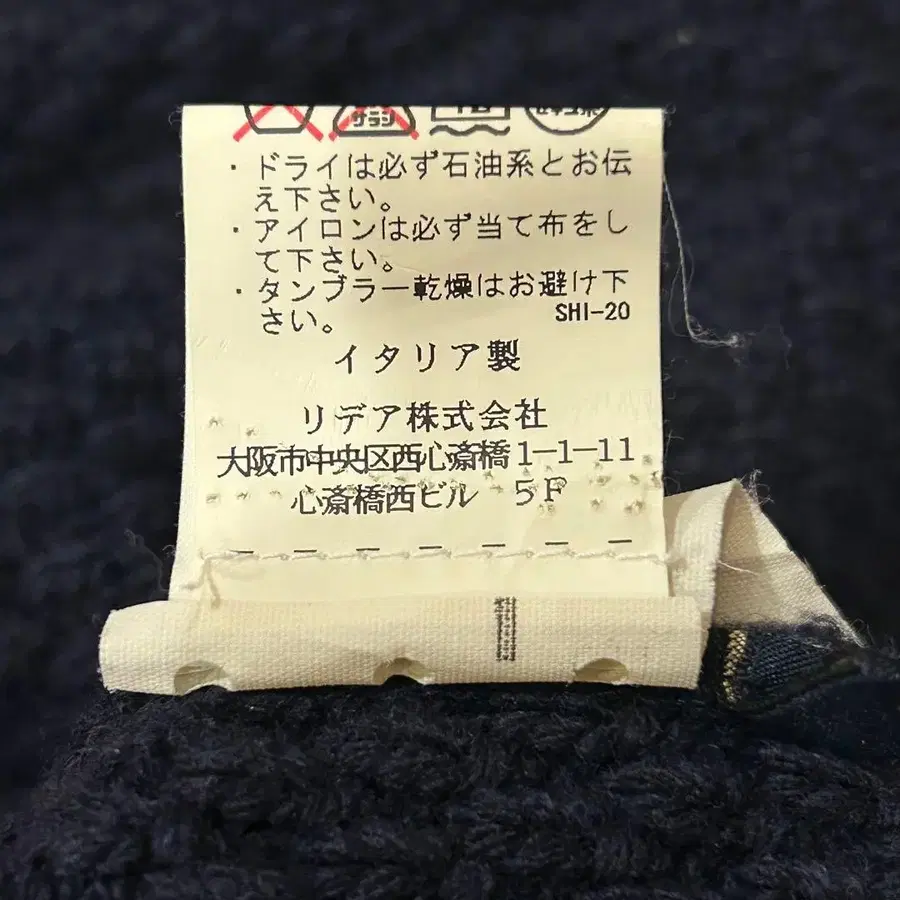 ・ドライは必ず石油系とお伝
え下さい。
・アイロンは必ず当て布をし
て下さい。
・タンブラー乾燥はお避け下
さい。
SHI-20
イタリア製
リデア株式会社
大阪市中央区西心斎橋1-1-11
心斎橋西ビル 5F